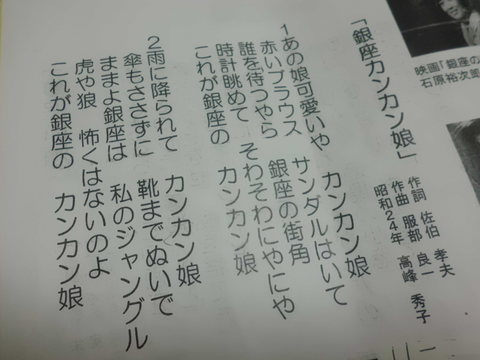 「銀座カンカン娘」
作詞 佐伯 孝夫
作曲 服部 良一
昭和24年 高峰 秀子
1あの娘可愛いや カンカン娘
赤いブラウス サンダルはいて
誰を待つやら 銀座の街角
時計眺めて そわそわにやにや
これが銀座の カンカン娘
2雨に降られて カンカン娘
傘もささずに 靴までぬいで
ままよ銀座は 私のジャングル
虎や狼 怖くはないのよ
これが銀座の カンカン娘
映画「銀座の
石原裕次郎